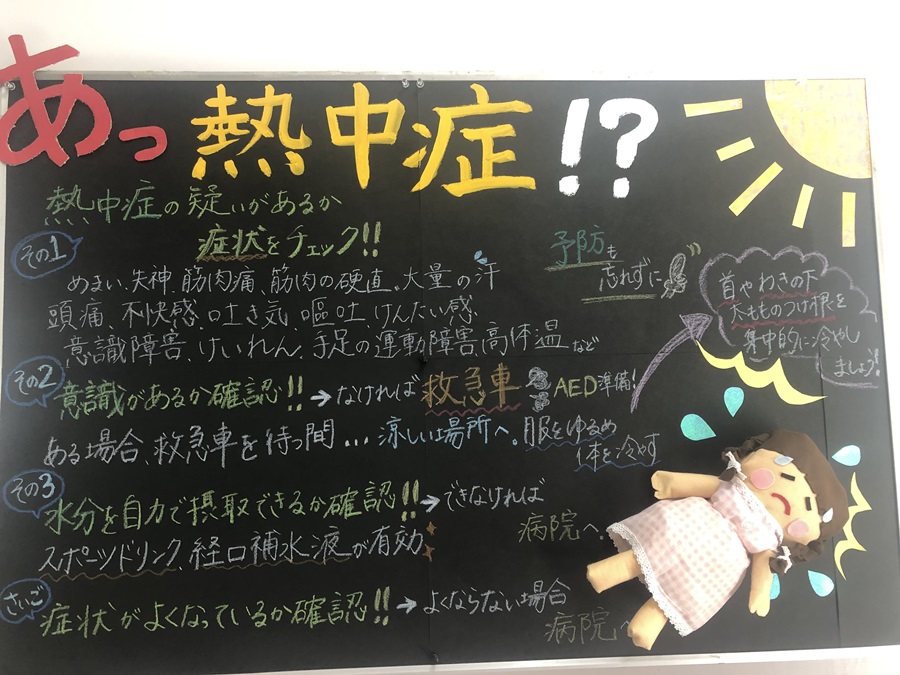 あっ熱中症!?
熱中症の疑いがあるか
症状をチェック!!
予防も
忘れずに
その1
めまい.失神.筋肉痛.筋肉の硬直.大量の汗
頭痛.不快感.吐き気.嘔吐.けんたい感
意識障害.けいれん.手足の運動障害.高体温など
首やわきの下
太もものつけ根を
集中的に冷やし
ましょう!
その2
意識があるか確認!!→なければ救急車 AED準備!
ある場合、救急車を待つ間…涼しい場所へ.服をゆるめ
体を冷やす
その3
水分を自力で摂取できるか確認!!→できなければ
病院へ.
スポーツドリンク.経口補水液が有効
さいご
症状がよくなっているか確認!!→よくならない場合
病院へ